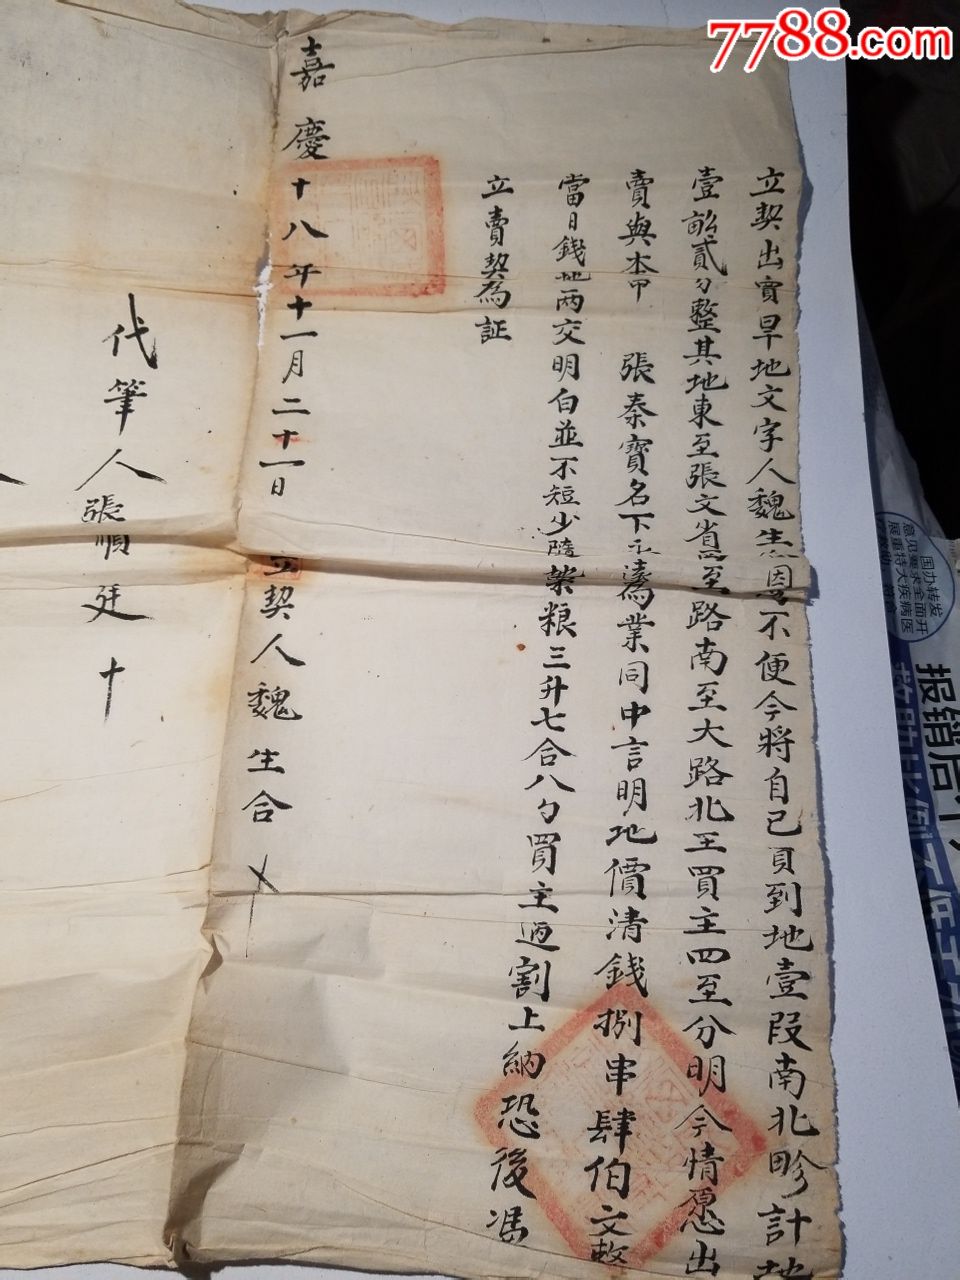 7788.com
立契出賣旱地文字人魏生 不便今將自己頁到地壹段南北畛計地
壹畝貳分整其地東至張文省 至路南至大路北至買主四至分明今情愿出
賣與本甲 張泰寶名下永遠為業同中言明地價清錢捌串肆伯文整
當日錢地两交明白並不短少隨 粮三升七合八勺買主過割上納恐後馮
立賣契為証
嘉慶十八年十一月二十一日 立契人魏生合 十
代筆人張順廷 十
人
国办转发
意见要求全面开
展重特大疾病医
报销后个